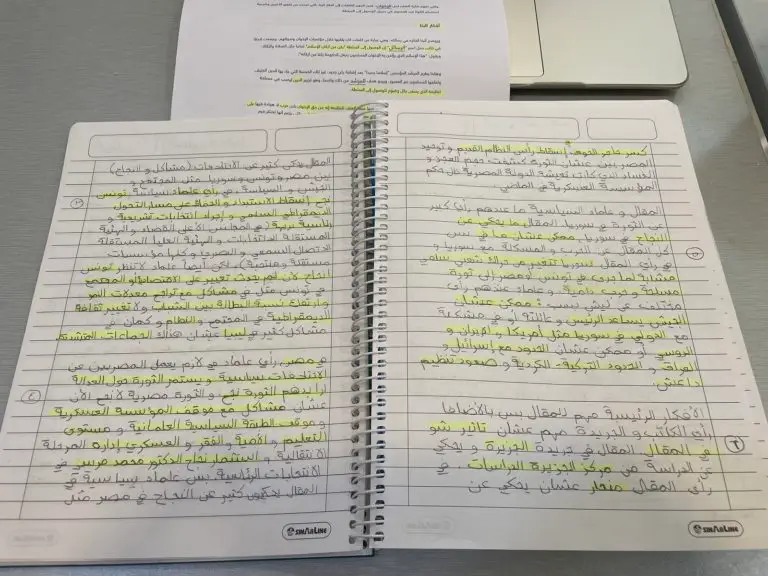 كبسر حاجز الخوف وإسقاط رأس النظام القديم و توحيد
المصريين عشان الثورة كشفت حجم العجز و
الفساد الذي كانت تعيشه الدولة المصرية خلال حكم
المؤسسة العسكرية في الماضي.
المقال و علماء السياسية ما عندهم رأي كبير
عن الثورة في سوريا. المقال ما يحكي عن
النجاح في سوريا. ممكن عشان ما في بس
كل المقال عن الحرب و المشكلة مع سوريا و
في رأي المقال سوريا تتغير من حراك شعبي سلمي
مشابه لما جرى في تونس و مصر إلى ثورة
مسلحة و حرب دامية. و علماء عندهم رأي
مختلف عن ليش بسبب: ممكن عشان
الجيش يساعد الرئيس و عائلة أو في مشكلة
مع الدولي في سوريا مثل أمريكا و إيران و
الروسي أو ممكن عشان الحدود مع إسرائيل و
العراق و الحدود التركية-الكردية و صعود تنظيم
داعش.
الأفكار الرئيسية مهم للمقال بس بالإضافة
رأي الكاتب و الجريدة مهم عشان تأثير شو
في المقال. المقال في جريدة الجزيرة و يحكي
عن الدراسة من مركز الجزيرة الدراسات. في
رأي المقال منحاز عشان يحكي عن
SINARLINE
المقال يحكي كثير عن الاختلافات (مشاكل و النجاح)
بين مصر و تونس و سوريا مثل المجتمع و
الجيش و السياسة. في رأي علماء سياسية تونس
نجح إسقاط الاستبداد و الحفاظ على مسار التحول
الديمقراطي السلمي و إجراء انتخابات تشريعية و
رئاسية حرة (في المجلس الأعلى القضاء و الهيئة
المستقلة للانتخابات و الهيئة العليا المستقلة
الاتصال السمعي و البصري و كلها مؤسسات
مستقلة و منتخبة) لكن أيضاً علماء لا تنظر تونس
النجاح كان لم يحدث تغيير على الاقتصاد و المجتمع
في تونس مثل في مشاكل مع تراجع معدلات النمو
و ارتفاع نسبة البطالة بين الشباب و لا تغيير ثقافة
الديمقراطية في المجتمع و النظام و كمان في
مشاكل كثير في ليبيا عشان هناك الجماعات المتشددة.
في مصر، رأي علماء في لازم يعمل المصريين عن
الاختلافات سياسية و يستمر الثورة حول العدالة
إذا بدهم الثورة نجح. و الثورة مصرية لا نجح الآن
عشان مشاكل مع موقف المؤسسة العسكرية
و موقف الطبقة السياسية العلمانية و مستوى
التعليم و الأمية و الفقر و العسكري إداره المرحلة
الانتقالية و استثمار نجاح الدكتور محمد مرسي في
الانتخابات الرئاسية. بس علماء سياسية في
المقال يحكون كثير عن النجاح في مصر مثل
SINARLINE